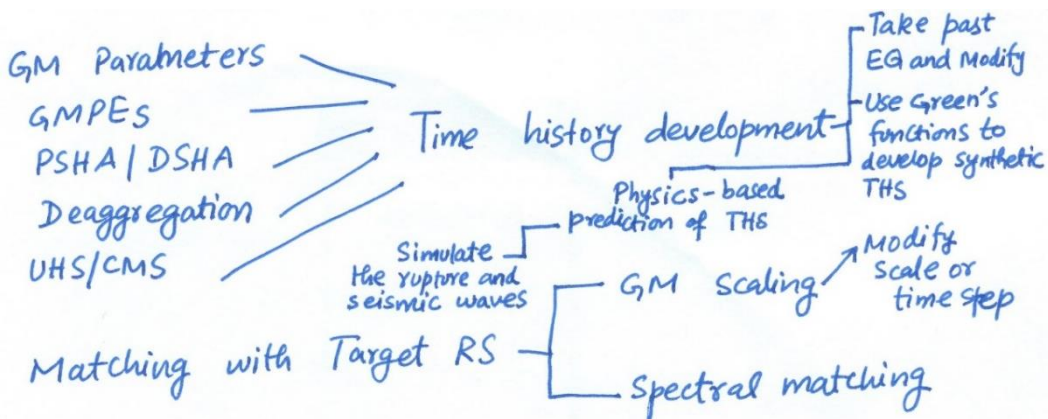 GM Parameters
GMPEs
PSHA/DSHA
Deaggregation
UHS/CMS
Time history development
Take past
EQ and Modify
Use Green's
functions to
develop synthetic
THS
Physics-based
prediction of THS
Simulate
the rupture and
seismic waves
Matching with Target RS
GM scaling
Modify
scale or
time step
Spectral matching